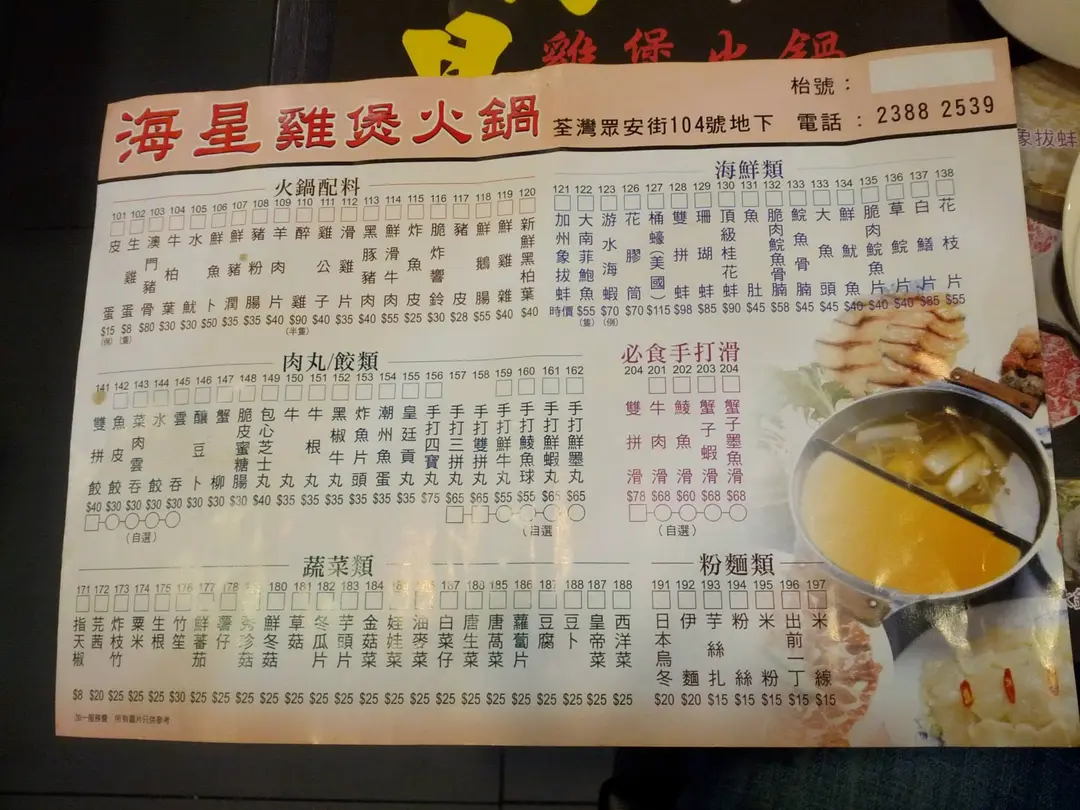 雞煲火鍋
海星雞煲火鍋
荃灣眾安街104號地下
枱號：
電話：2388 2539
象拔蚌
火鍋配料
101 皮蛋 $15 (例)
102 生雞蛋 $8 (隻)
103 澳門豬骨 $80
104 牛柏葉 $30
105 水魷 $30
106 鮮魚卜 $50
107 鮮豬潤 $35
108 豬粉腸 $35
109 羊肉片 $40
110 醉雞 $90 (半隻)
111 雞公子 $40
112 滑雞片 $35
113 黑豚豬肉 $40
114 鮮滑牛肉 $55
115 炸魚皮 $25
116 脆炸響鈴 $30
117 豬皮 $28
118 鮮鵝腸 $55
119 鮮雞雜 $40
120 新鮮黑柏葉 $40
海鮮類
121 加州象拔蚌 時價
122 大南菲鮑魚 $55 (隻)
123 游水海蝦 $70 (例)
126 花膠筒 $70
127 桶蠔(美國) $115
128 雙拼蚌 $98
129 珊瑚蚌 $85
130 頂級桂花蚌 $90
131 魚肚 $45
132 脆肉鯇魚腩 $58
133 鯇魚骨腩 $45
133 大魚頭 $45
134 鮮魷魚 $40
135 脆肉鯇魚片 $40
136 草鯇片 $40
137 白鱔片 $85
138 花枝片 $55
肉丸/餃類
141 雙拼餃 $40
142 魚皮餃 $30
143 菜肉雲吞 $30
144 水餃 $30
145 雲吞 $30
(自選)
146 釀豆卜 $30
147 蟹柳 $30
148 脆皮蜜糖腸 $30
149 包心芝士丸 $40
150 牛丸 $35
151 牛根丸 $35
152 黑椒牛丸 $35
153 炸魚片頭 $35
154 潮州魚蛋 $35
155 皇廷貢丸 $35
156 手打四寶丸 $75
157 手打三拼丸 $65
158 手打雙拼丸 $65
159 手打鮮牛丸 $55
160 手打鯪魚球 $55
161 手打鮮蝦丸 $65
162 手打鮮墨丸 $65
(自選)
必食手打滑
204 雙拼滑 $78
201 牛肉滑 $68
202 鯪魚滑 $60
203 蟹子蝦滑 $68
204 蟹子墨魚滑 $68
(自選)
蔬菜類
171 指天椒 $8
172 芫茜 $20
173 炸枝竹 $25
174 粟米 $25
175 生根 $25
176 竹笙 $30
177 鮮蕃茄 $25
178 薯仔 $25
秀珍菇 $25
180 鮮冬菇 $25
181 草菇 $25
182 冬瓜片 $25
183 芋頭片 $25
184 金菇菜 $25
娃娃菜 $25
油麥菜 $25
白菜仔 $25
唐生菜 $25
185 唐萵菜 $25
186 蘿蔔片 $25
187 豆腐 $25
188 豆卜 $25
187 皇帝菜 $25
188 西洋菜 $25
粉麵類
191 日本烏冬 $20
192 伊麵 $20
193 芋絲扎 $15
194 粉絲 $15
195 米粉 $15
196 出前一丁 $15
197 米線 $15
加一服務費 所有圖片只供參考